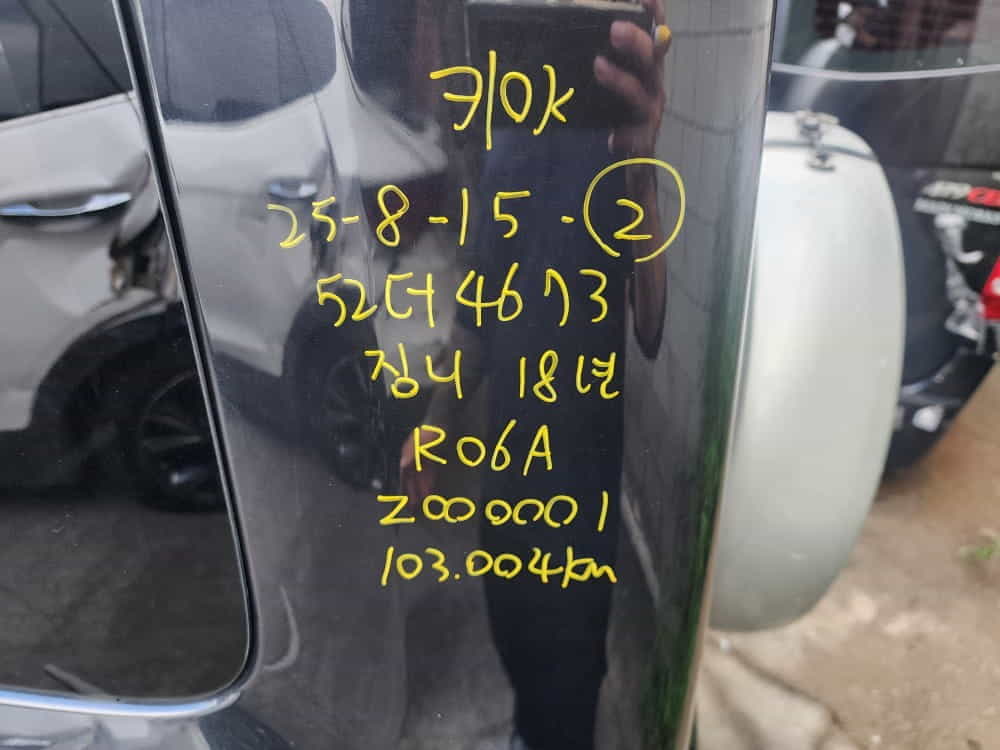 키아
25-8-15-②
52더4673
짐니 18년
R06A
Z000001
103.004km